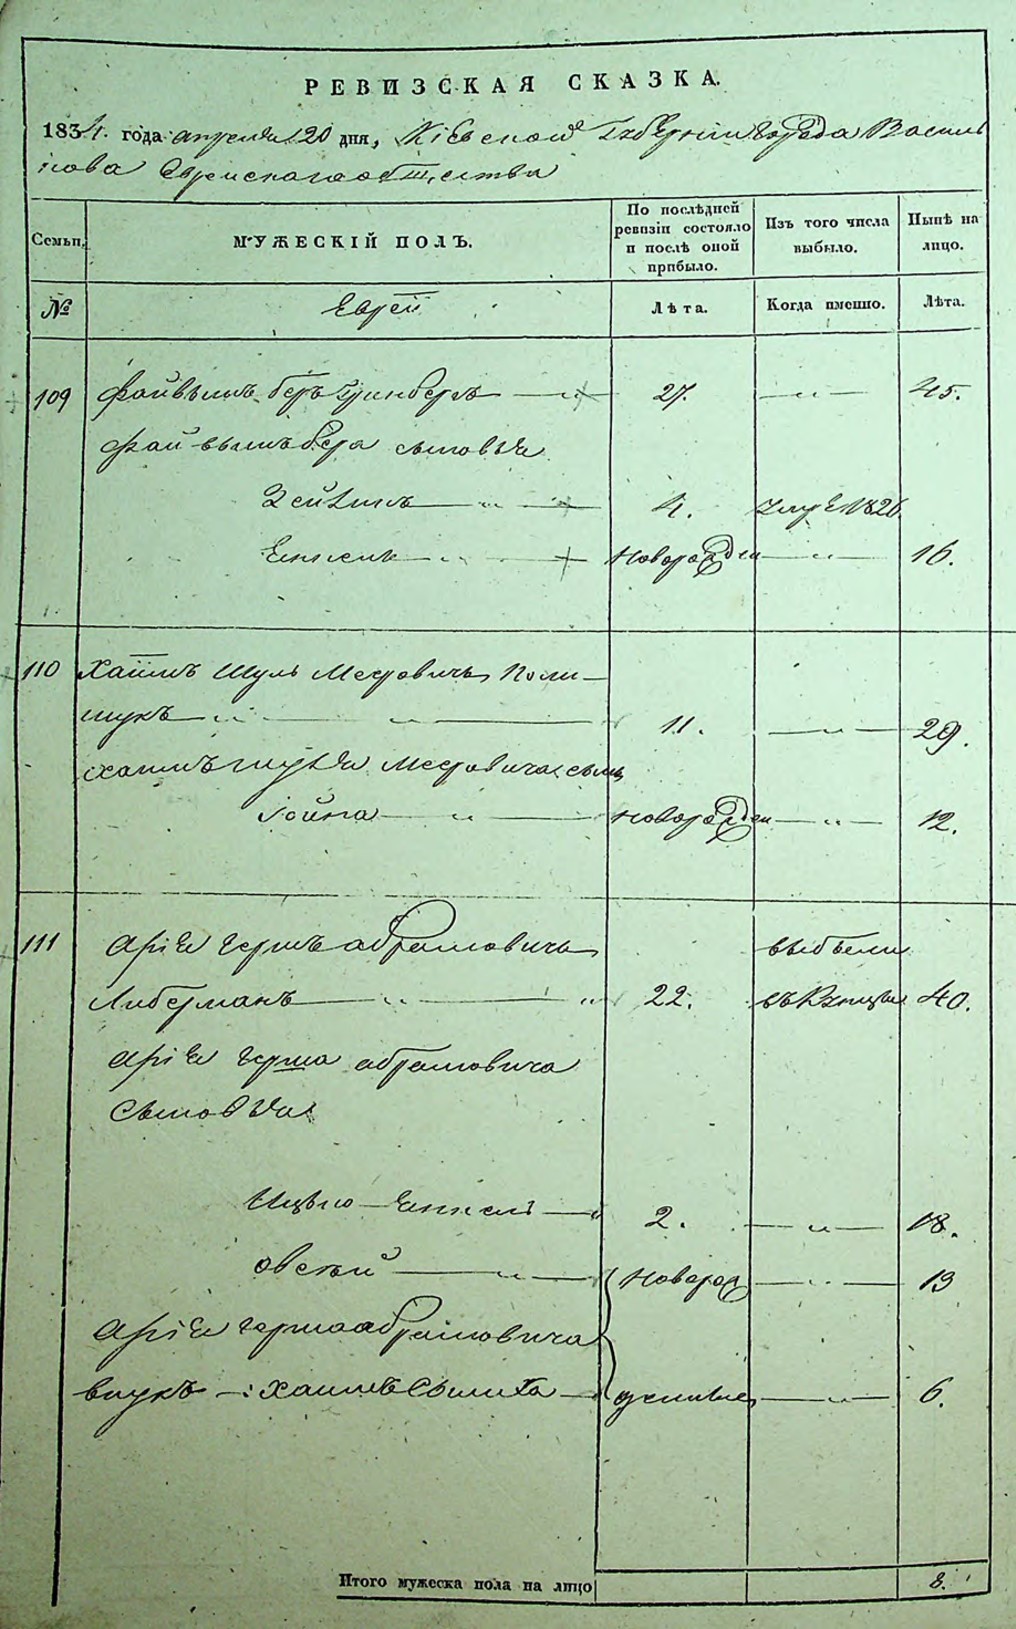 РЕВИЗСКАЯ СКАЗКА.
1834. года апреля 20 дня, Кіевской Губерніи города Василь
кова Еврейскаго общества
Семьи.
МУЖЕСКІЙ ПОЛЪ.
По послѣдней ревизіи состояло и послѣ оной прибыло.
Изъ того числа выбыло.
Нынѣ на лицо.
№
Еврей
Лѣта.
Когда именно.
Лѣта.
109 Файвъишъ Беръ Гринбергъ 27. 45.
Файвъишъ Бера сыновья
Зейликъ 4. умре 1826.
Янкель новорожден 16.
110 Хаимъ Шулъ Мееровичъ Поли-
щукъ 11. 29.
Хаимъ Шуля Мееровича сынъ
Іойна новорожден 12.
111 Аріе Гершъ Абрамовичъ
Либерманъ 22. 40.
Аріе Герша Абрамовича
Сыновья
Ицько-Янкель 2. 18.
Овсѣй новорож 13
Аріе Герша Абрамовича
внукъ Хаимъ 6.
Итого мужеска пола на лицо 8.